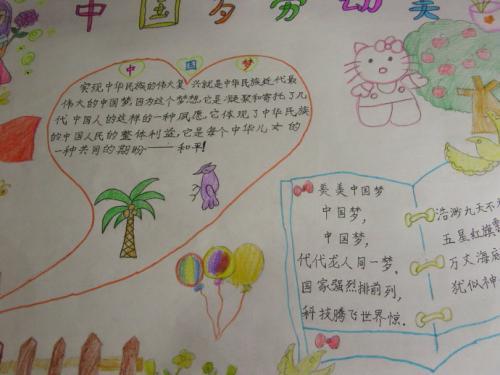 中国梦劳动美
中国梦
实现中华民族的伟大复兴就是中华民族近代最
伟大的中国梦因为这个梦想,它是凝聚和寄托了几
代中国人的这样的一种夙愿,它体现了中华民族
的中国人民的整体利益,它是每个中华儿女的
一种共同的期盼——和平!
美美中国梦
中国梦,
中国梦,
代代龙人同一梦.
国家强烈排前列,
科技腾飞世界惊.
浩渺九天不
五星红旗
万丈海底
犹似神